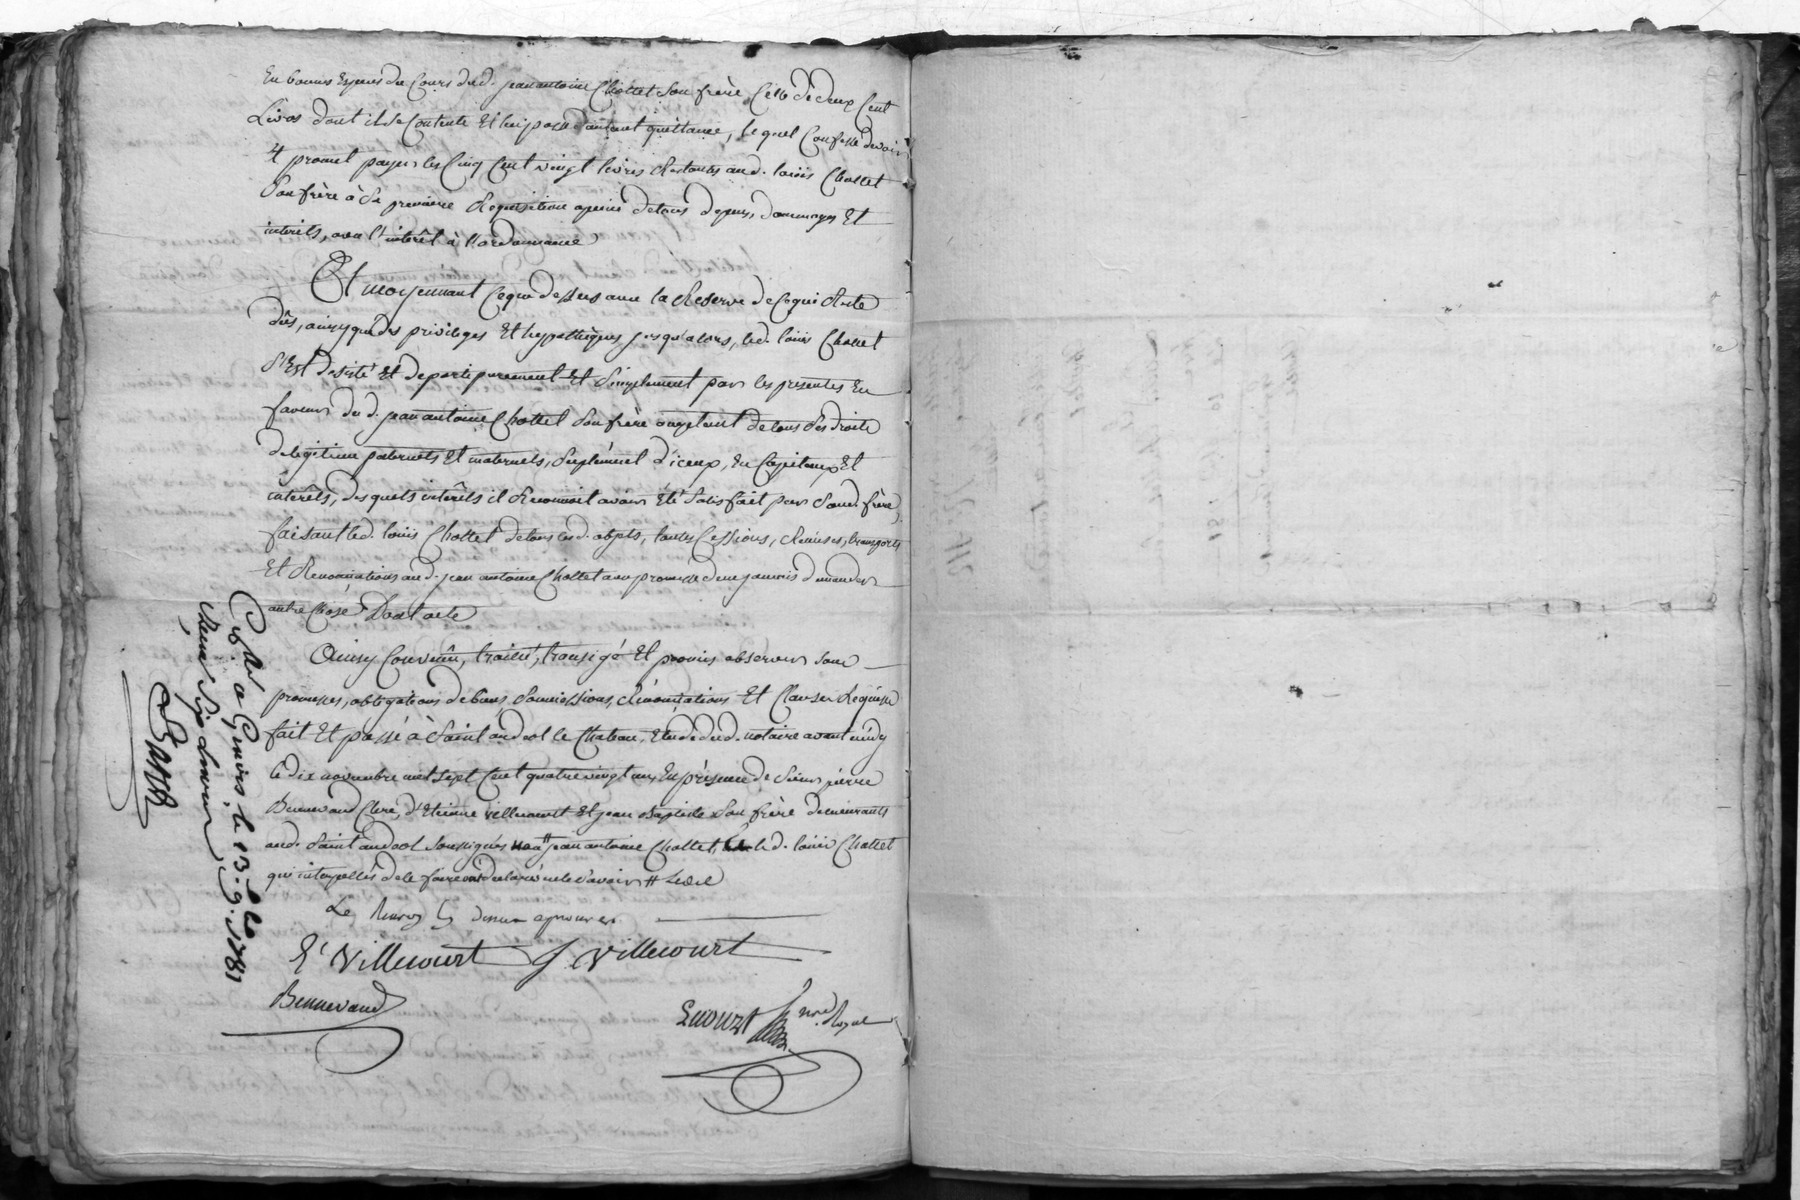 En bonnes Espèces du Cours dud. jean antoine Chottet Son frère Celle de deux Cent
Livres dont il Se Contente Et lui passe d'autant quittance, lequel Confesse devoir
Et promet payer les Cinq Cent vingt livres Restantes aud. louis Chottet
Son frère à Sa première Requisition apeine de tous depens, dommages Et
interêts, avec l'interêt à l'ordonnance
Et moyennant Ce que dessus avec la Reserve de Ce qui Reste
dûs, ainsy que des privileges Et hypotheques jusqu'alors, led. louis Chottet
S'Est desisté Et departi purement Et Simplement par les presentes En
faveur du d. jean antoine Chottet Son frère acceptant de tous Ses droits
de legitime paternels Et maternels, Suplément d'iceux, En Capitaux Et
interêts, des quels interêts il Reconnoit avoir été Satisfait par Sond. frère,
faisant led. louis Chottet de tous les d. objets, toutes Cessions, Remises, transports
Et Renonciations aud. jean antoine Chottet avec promesse de ne jamais demander
autre Chose Dont acte
Ainsy Convenu, traité, transigé Et promis observer sous
promesses, obligations de biens, Soumissions, Rénonciations Et Clauses Requises
fait Et passé à Saint andeol le Chateau, Etude dud. notaire avant midy
le dix novembre mil sept Cent quatre vingt un, En présence de Sieur pierre
Bennevaud Clerc, d'Etienne villecourt Et jean Baptiste Son frère demeurants
aud. Saint andeol Soussignés # jean antoine Chottet, led. louis Chottet
qui interpellés de le faire ont declaré ne le Savoir # led.
Le Renvoy Cy dessus aprouver
E. Villecourt J. Villecourt
Bennevaud
Enourt nre. Royal
C.lé a Givors, le 13. 9.bre 1781